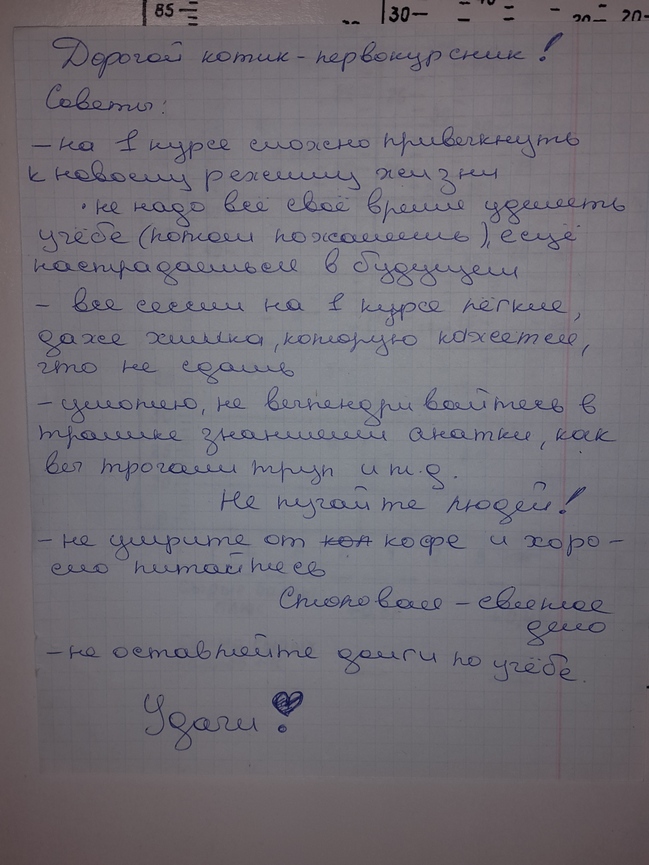 85— 30— 20— 20—
Дорогой котик-первокурсник!
Советы:
— на 1 курсе сложно привыкнуть
к новому режиму жизни
· не надо всё своё время уделять
учёбе (потом пожалеешь), ещё
настрадаешься в будущем
— все сессии на 1 курсе лёгкие,
даже химия, которую кажется,
что не сдашь
— умоляю, не выпендривайтесь в
трамвае знаниями анатки, как
вы трогали труп и т.д.
Не пугайте людей!
— не умрите от кофе и хоро-
шо питайтесь
Столовая — святое
дело
— не оставляйте долги по учёбе.
Удачи!